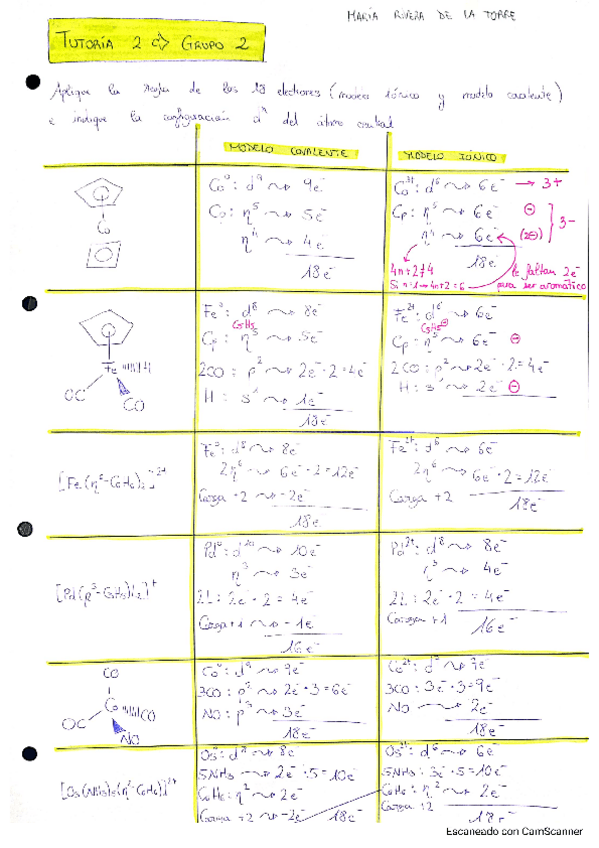 MARÍA RIVERA DE LA TORRE
TUTORÍA 2 => GRUPO 2
Aplique la regla de los 18 electrones (modelo iónico y modelo covalente)
e indique la configuración dⁿ del átomo central
MODELO COVALENTE
MODELO IÓNICO
Co
Co⁰: d⁹ ⟿ 9e⁻
Cp: η⁵ ⟿ 5e⁻
η⁴ ⟿ 4e⁻
18e⁻
Co³⁺: d⁶ ⟿ 6e⁻ → 3+
Cp: η⁵ ⟿ 6e⁻ ⊖
η⁴ ⟿ 6e⁻ (2⊖) 3-
18e⁻
4n+2≠4
Si n=1 → 4n+2=6
le faltan 2e⁻
para ser aromático
Fe H
OC CO
Fe⁰: d⁸ ⟿ 8e⁻
C₅H₅
Cp: η⁵ ⟿ 5e⁻
2CO: μ² ⟿ 2e⁻·2=4e⁻
H: s¹ ⟿ 1e⁻
18e⁻
Fe²⁺: d⁶ ⟿ 6e⁻
C₅H₅⊖
Cp: η⁵ ⟿ 6e⁻ ⊖
2CO: μ² ⟿ 2e⁻·2=4e⁻
H: s¹ ⟿ 2e⁻ ⊖
[Fe(η⁶-C₆H₆)₂]²⁺
Fe⁰: d⁸ ⟿ 8e⁻
2η⁶ ⟿ 6e⁻·2=12e⁻
Carga +2 ⟿ -2e⁻
18e⁻
Fe²⁺: d⁶ ⟿ 6e⁻
2η⁶ ⟿ 6e⁻·2=12e⁻
Carga +2
18e⁻
[Pd(η³-C₃H₅)L₂]⁺
Pd⁰: d¹⁰ ⟿ 10e⁻
η³ ⟿ 3e⁻
2L: 2e⁻·2=4e⁻
Carga +1 ⟿ -1e⁻
16e⁻
Pd²⁺: d⁸ ⟿ 8e⁻
η³ ⟿ 4e⁻
2L: 2e⁻·2=4e⁻
Carga +1
16e⁻
CO
Co CO
OC NO
Co⁰: d⁹ ⟿ 9e⁻
3CO: μ² ⟿ 2e⁻·3=6e⁻
NO: μ³ ⟿ 3e⁻
18e⁻
3CO: 3e⁻·3=9e⁻
NO ⟿ 2e⁻
18e⁻
[Os(NH₃)₅(η²-C₆H₆)]²⁺
Os⁰: d⁸ ⟿ 8e⁻
5NH₃ ⟿ 2e⁻·5=10e⁻
C₆H₆: η² ⟿ 2e⁻
Carga +2 ⟿ -2e⁻ 18e⁻
Os²⁺: d⁶ ⟿ 6e⁻
5NH₃: 3e⁻·5=10e⁻
C₆H₆: η² ⟿ 2e⁻
Carga +2 18e⁻
Escaneado con CamScanner